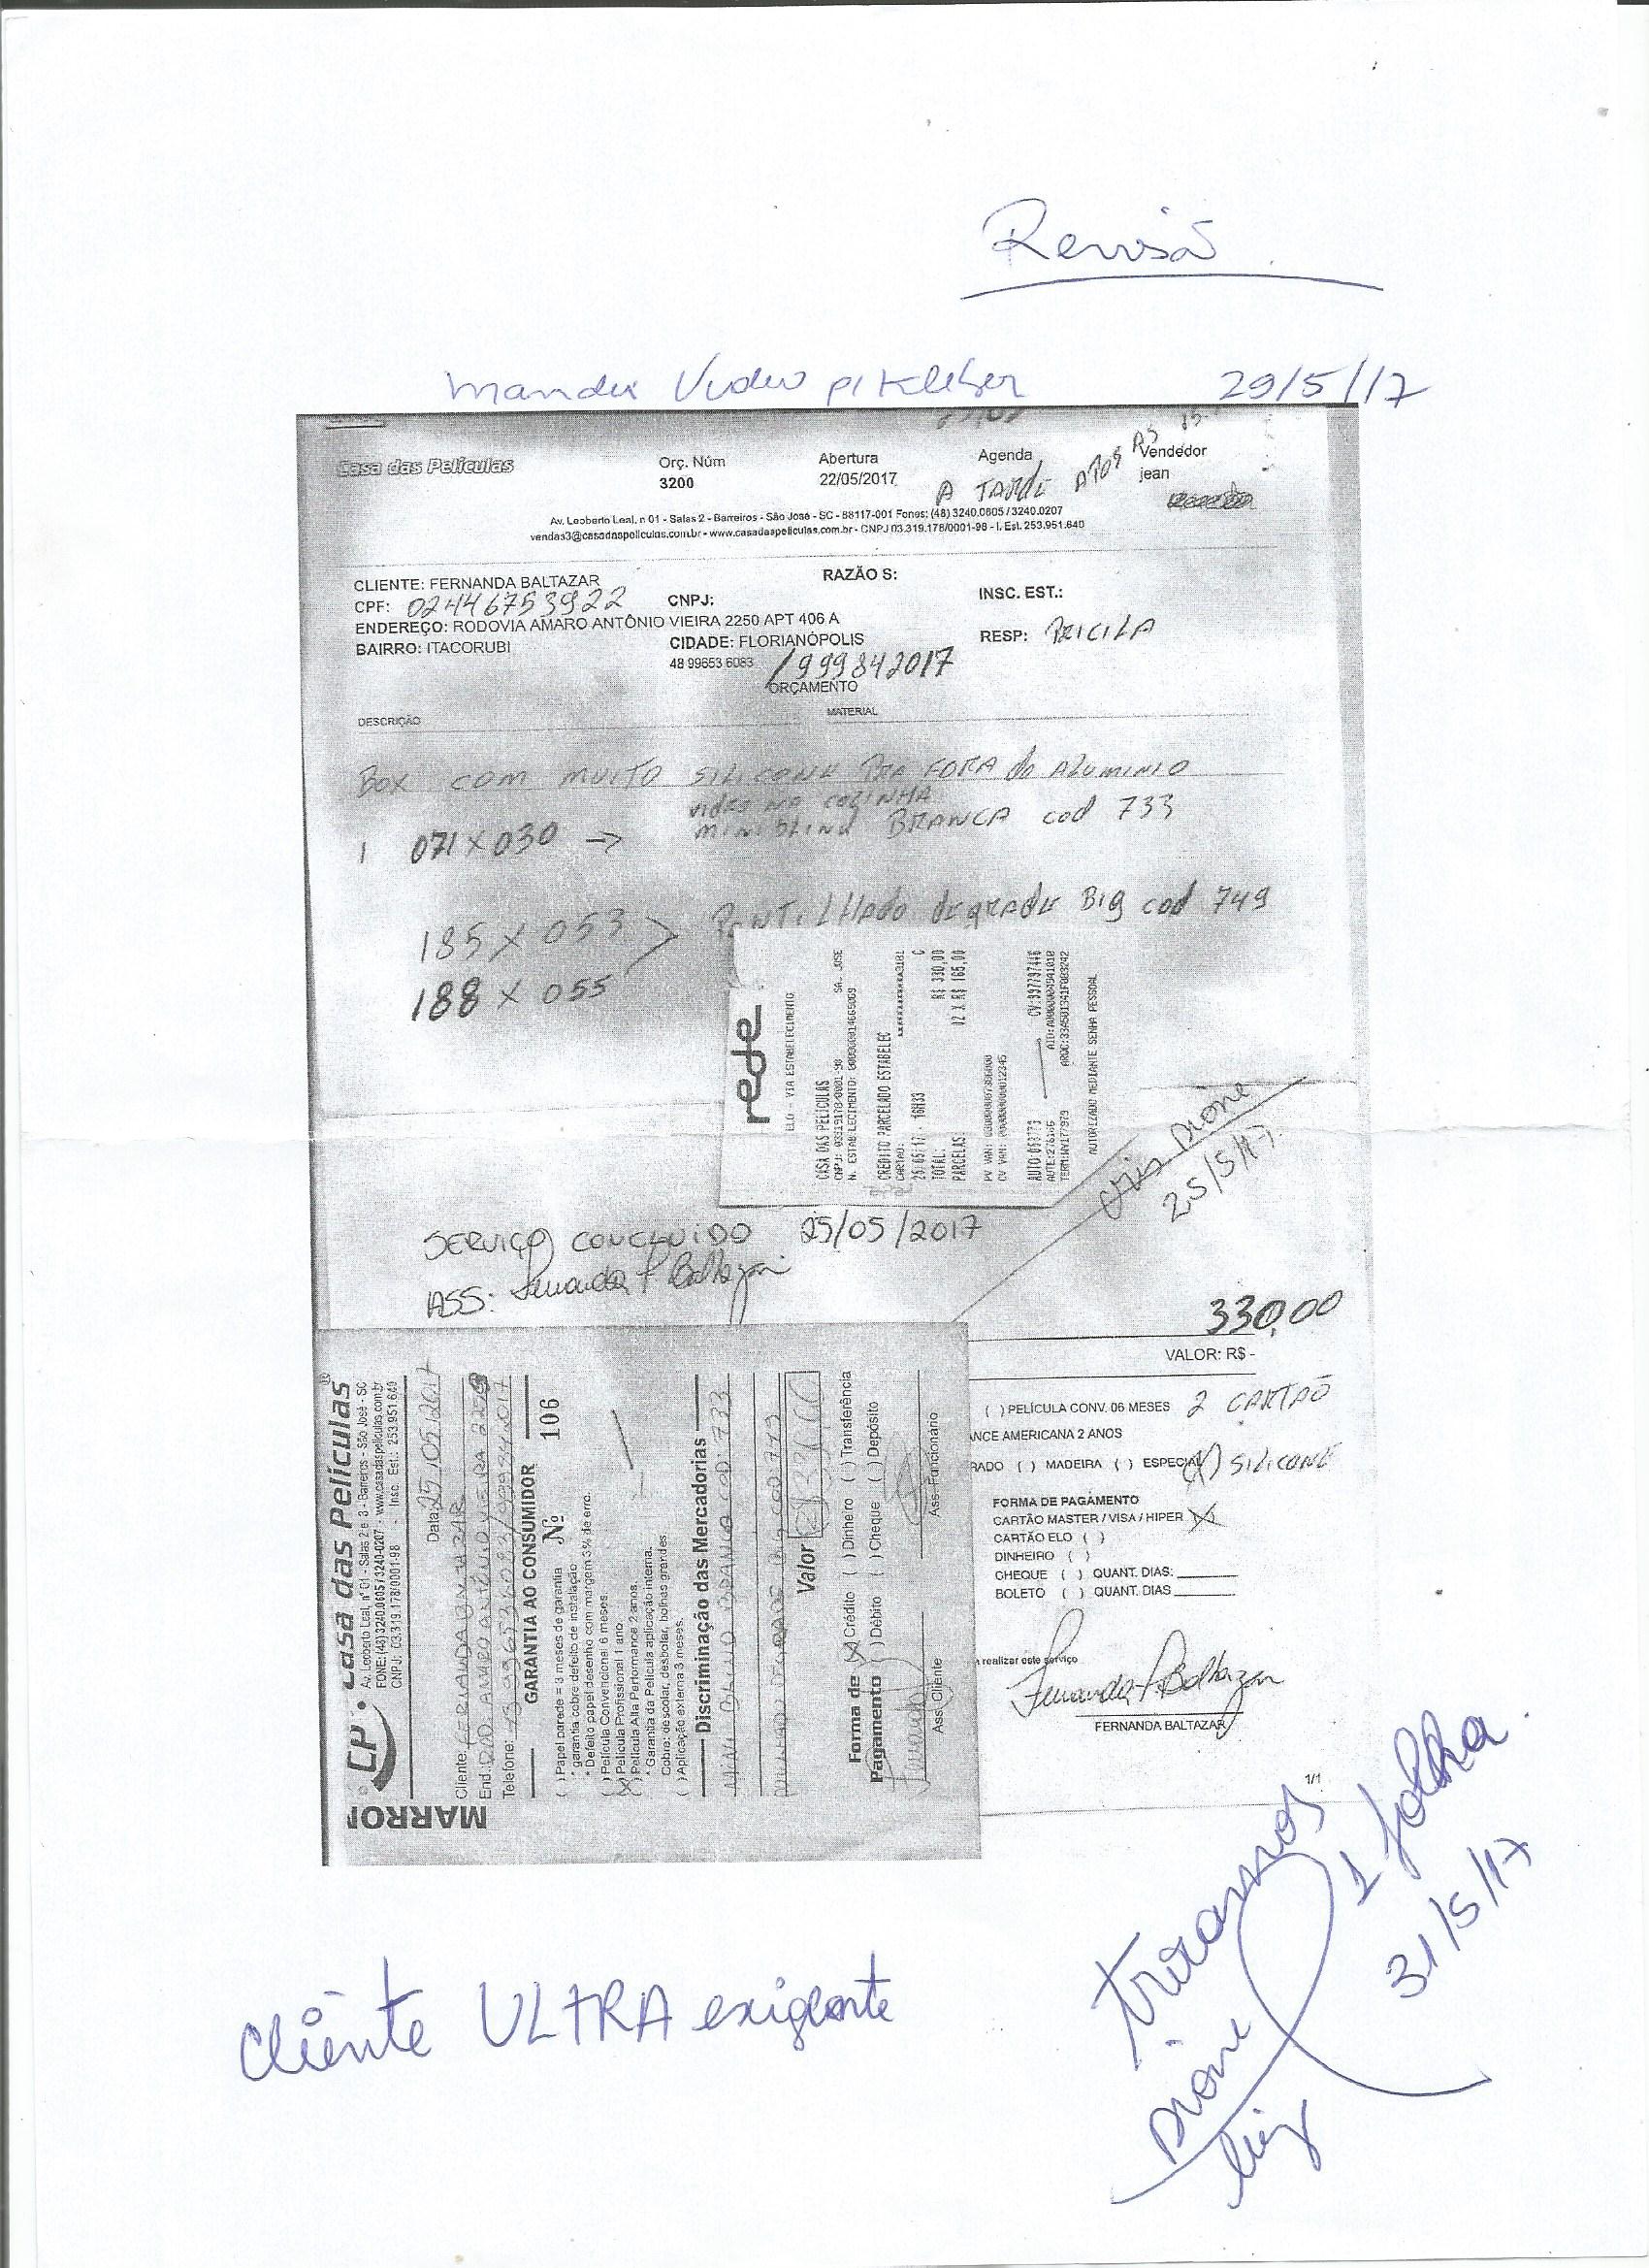 Revisã
Mandar Video p/ Kleber 29/5/17
Casa das Películas
Orç. Núm
3200
Abertura
22/05/2017
Agenda
A TARDE APOS AS 15
Vendedor
jean
Av. Leoberto Leal, n 01 - Salas 2 - Barreiros - São José - SC - 88117-001 Fones: (48) 3240.0605 / 3240.0207
vendas3@casadaspeliculas.com.br - www.casadaspeliculas.com.br - CNPJ 03.319.178/0001-98 - I. Est. 253.951.640
RAZÃO S:
CLIENTE: FERNANDA BALTAZAR
CPF: 02446753922 CNPJ: INSC. EST.:
ENDEREÇO: RODOVIA AMARO ANTÔNIO VIEIRA 2250 APT 406 A
BAIRRO: ITACORUBI CIDADE: FLORIANÓPOLIS RESP: PRICILA
48 99653 6083 / 999842017
ORÇAMENTO
DESCRIÇÃO MATERIAL
BOX COM MUITO SILICONE PRA FORA do ALUMINIO
vidro na COZINHA
1 071 X 030 → MINI BLIND BRANCA cod 733
185 X 053 > PONTILHADO degrade Big cod 749
188 X 055
rede
ELO - VIA ESTABELECIMENTO
CASA DAS PELICULAS SA. JOSE
CNPJ: 03319178/0001-98
N. ESTABELECIMENTO: 000000014665009
CREDITO PARCELADO ESTABELEC C
CARTAO:
25/05/17 - 16H33
TOTAL: R$ 330,00
PARCELAS: 02 X R$ 165,00
AUTORIZADO MEDIANTE SENHA PESSOAL
Cris Dione
25/5/17
SERVIÇO CONCLUIDO 25/05/2017
ASS: Fernanda F Baltazar
330,00
VALOR: R$ -
( ) PELÍCULA CONV. 06 MESES 2 CARTAO
ANCE AMERICANA 2 ANOS
RADO ( ) MADEIRA ( ) ESPECIAL (X) SILICONE
FORMA DE PAGAMENTO
CARTÃO MASTER / VISA / HIPER X
CARTÃO ELO ( )
DINHEIRO ( )
CHEQUE ( ) QUANT. DIAS:
BOLETO ( ) QUANT. DIAS
realizar este serviço
Fernanda F. Baltazar
FERNANDA BALTAZAR
1/1
MARRO
CP Casa das Películas ®
Av. Leoberto Leal, nº 01 - Salas 2 e 3 - Barreiros - São José - SC
FONE: (48) 3240.0605 / 3240-0207 - www.casadaspeliculas.com.br
CNPJ: 03.319.178/0001-98 - Insc. Est.: 253.951.640
Data 25/05/2017
Cliente: FERNANDA BALTAZAR
End.: ROD. AMARO ANTÔNIO VIEIRA 2250
Telefone:
GARANTIA AO CONSUMIDOR
Nº 106
( ) Papel parede = 3 meses de garantia
* garantia cobre defeito de instalação
* Defeito papel desenho com margem 3% de erro.
( ) Película Convencional 6 meses
(X) Película Profissional 1 ano
( ) Película Alta Performance 2 anos
* Garantia da Película aplicação interna.
Cobre: descolar, desbotar, bolhas grandes
( ) Aplicação externa 3 meses.
Discriminação das Mercadorias
MINI BLIND BRANCA COD 733
Valor
Forma de Pagamento
(X) Crédito ( ) Dinheiro ( ) Transferência
( ) Débito ( ) Cheque ( ) Depósito
Ass. Cliente Ass. Funcionário
Cliente ULTRA exigente
tiramos
1 folha
31/5/17
Dione